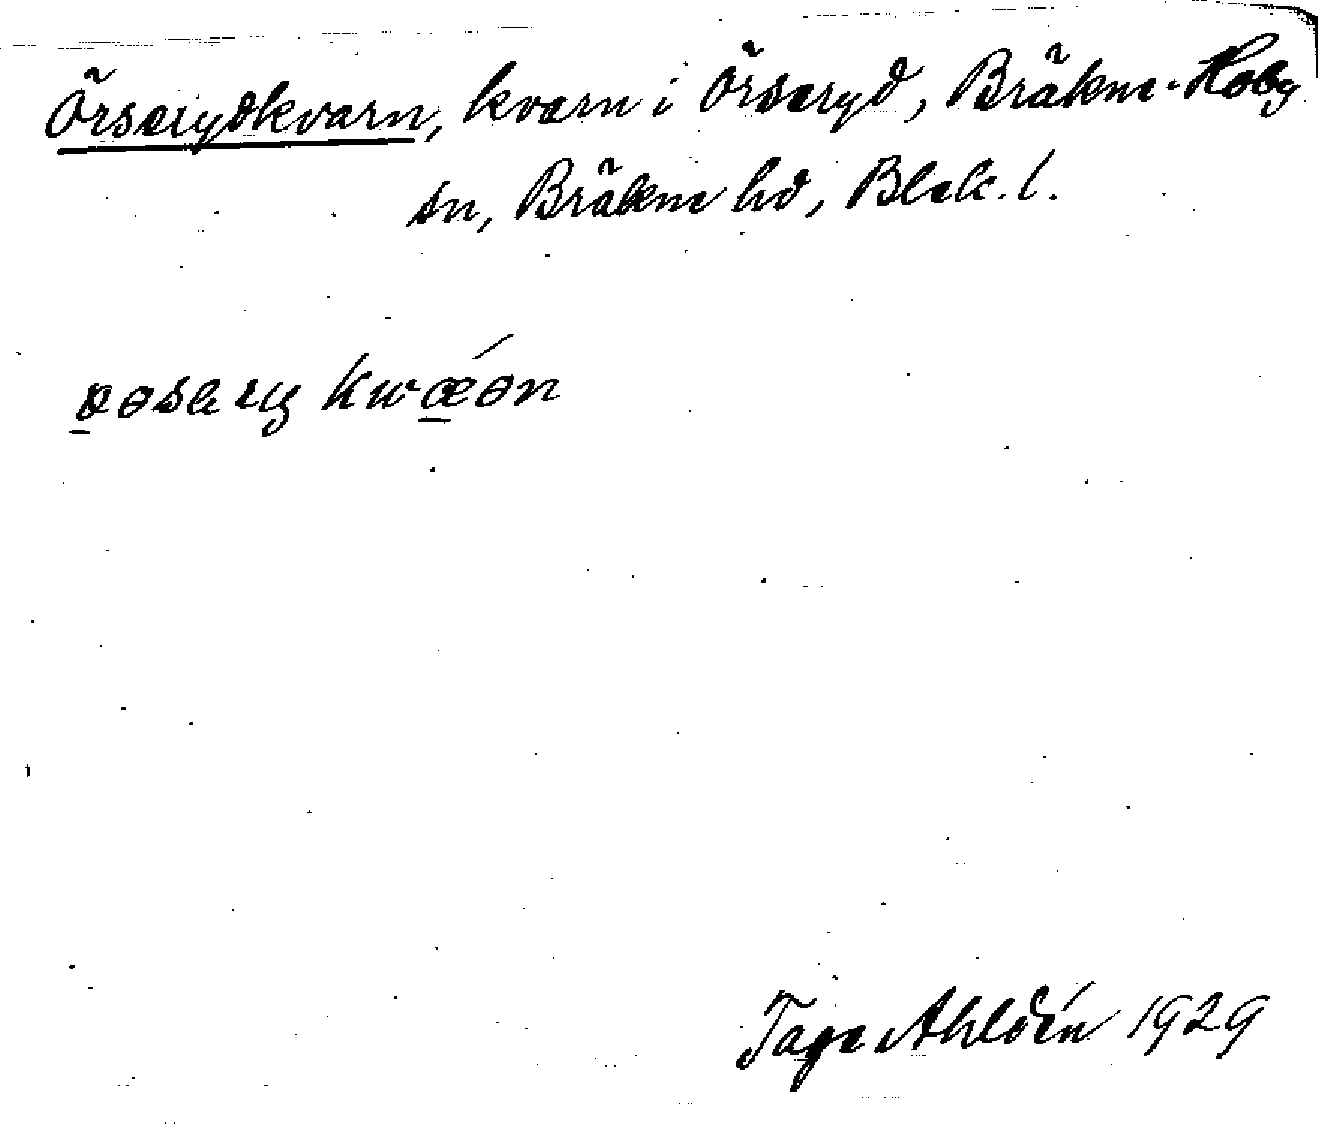 Örserydkvarn, kvarn i Örseryd, Bräkne-Hoby
sn, Bräkne hd, Blek. l.
Tage Ahldén 1929